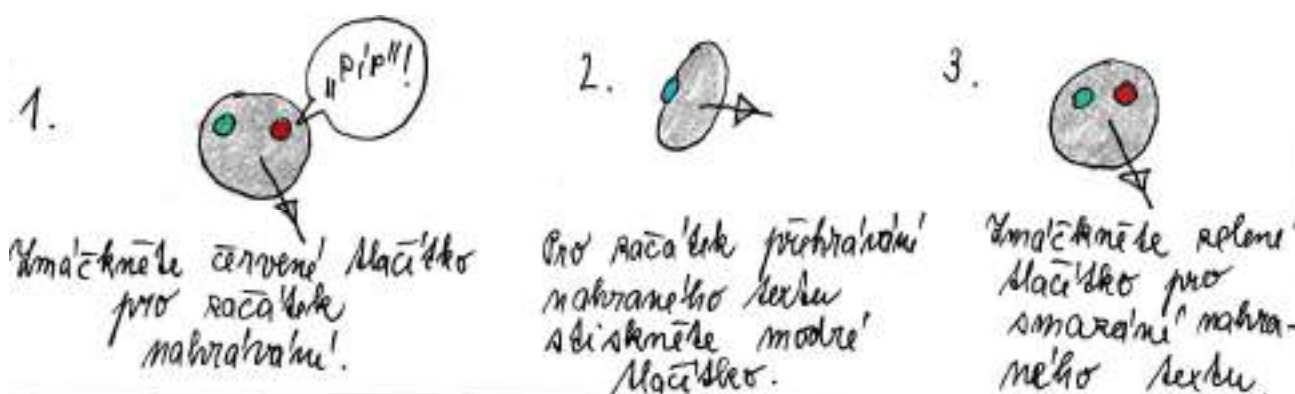 1.
„Píp"!
Zmáčkněte červené tlačítko
pro začátek
nahrávání.
2.
Pro začátek přehrávání
nahraného textu
stiskněte modré
tlačítko.
3.
Zmáčkněte zelené
tlačítko pro
smazání nahra-
ného textu